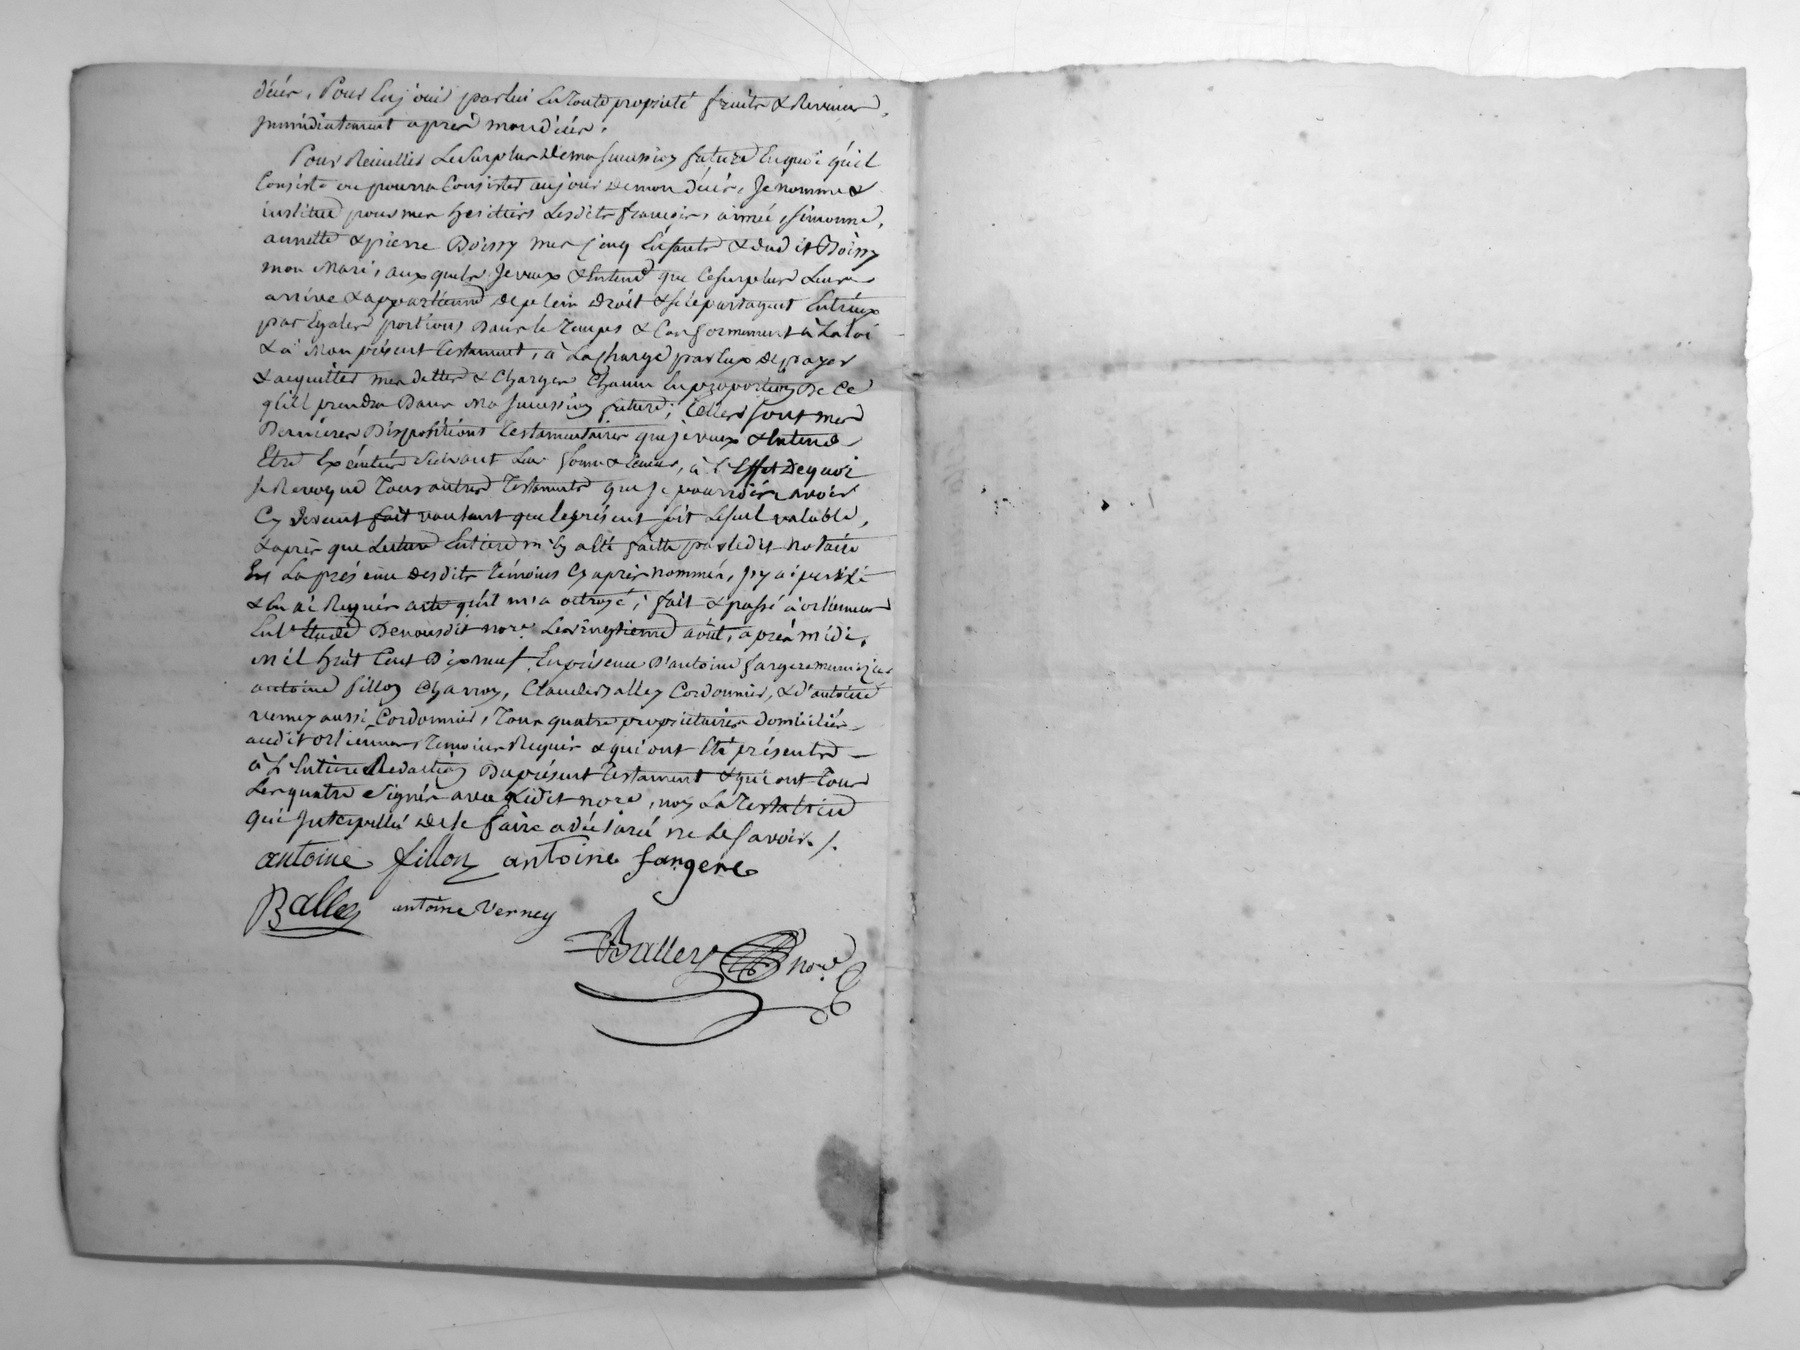 décés, Pour En jouir par lui En Toute propriété fruits & Revenus,
Immédiatement après mon décés.
Pour Recuellir Le Surplus De ma succession future En quoi qu'il
Consiste ou pourra Consister au jour De mon décés, Je nomme &
institue pour mes heritiers Lesdits françois, aimée, simonne,
annette & pierre Boissy mes Cinq Enfants & dud it Boissy
mon Mari, aux quels Je veux & Entend que Ce surplus Leur
arrive & appartienne De plein Droit & se le partagent Entreux
par Egales portions Dans le Temps & Conformement à La loi
& à Mon présent testament, à La charge par Eux De payer
& acquitter mes dettes & Charges Chacun En proportion De Ce
qu'il prendra Dans Ma succession future; telles sont mes
Dernières Dispositions testamentaires que je veux & Entend
Etre Exécutées Suivant Leur forme & teneur, à l'Effet De quoi
Je Revoque Tous autres Testaments que je pourrois avoir
Cy Devant fait voulant que le présent soit Le seul valable,
& après que Lecture Entiere m'En a Eté faitte par ledit Notaire
En La présence Desdits témoins Cy après nommés, J'y ai persisté
& En ai Requis acte qu'il m'a octroyé; fait & passé à orliennas
En l'Etude De nousdit nore. Le vingtieme août, après midi,
Mil huit Cent Dix neuf, En présence D'antoine fargere
antoine fillon Charron, Claude Balley Cordonnier, & D'antoine
verney aussi Cordonnier, Tous quatre propriétaires domiciliés
audit orliennas, témoins Requis & qui ont Eté présents
à L'Entiere Redaction Du présent Testament & qui ont Tous
Les quatre Signés avec Ledit nore, non La Testatrice
qui Interpellée De le faire a déclaré ne le savoir./.
antoine fillon antoine fargere
Balley antoine Verney
Balley nore